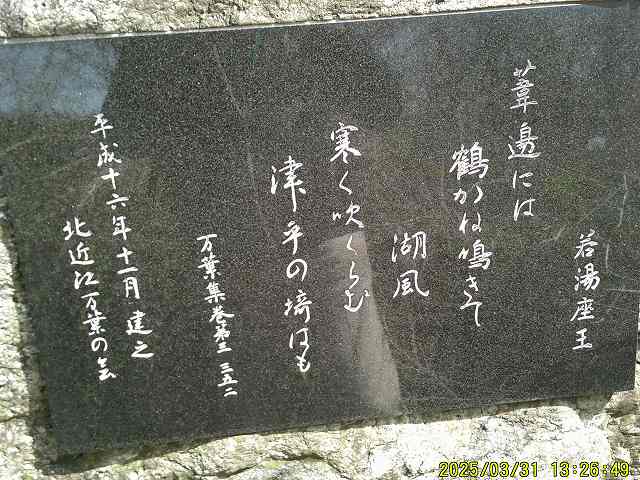 若湯座王
葦邊には
鶴がね鳴きて
湖風
寒く吹くらむ
津乎の埼はも
万葉集巻第三 三五二
平成十六年十一月 建之
北近江万葉の会
2025/03/31 13:26:49